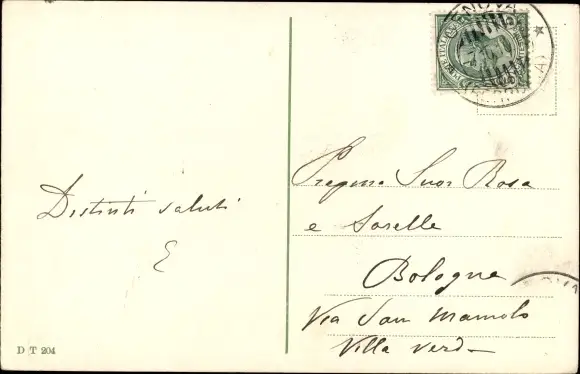 GENOVA
POSTE ITALIANE
Distinti saluti
E
Pregma Suor Rosa
e Sorelle
Bologna
Via San Mamolo
Villa Verde
D T 204